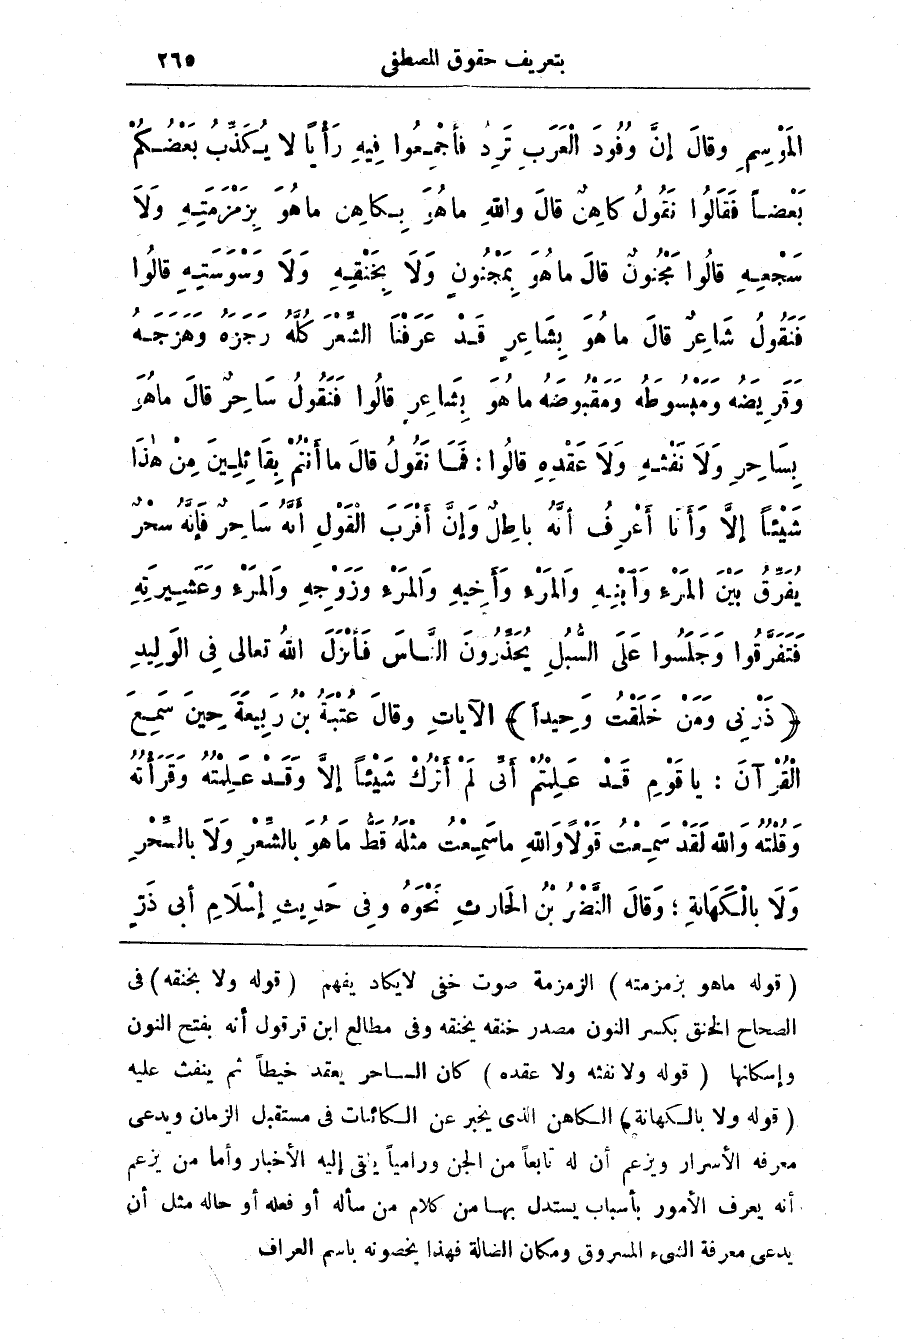 بتعريف حقوق المصطفى ٢٦٥
المَوْسِمِ وقالَ إنَّ وُفُودَ الْعَرَبِ تَرِدُ فأجْمِعُوا فِيهِ رَأْيًا لا يُكَذِّبُ بَعْضُكُمْ
بَعْضاً فَقَالُوا نَقُولُ كاهِنٌ قالَ واللهِ ماهُوَ بِكاهِن ماهُوَ بِزَمْزَمَتِهِ وَلَا
سَجْعِهِ قالُوا مَجْنُونٌ قالَ ماهُوَ بِمَجْنُونٍ وَلَا بِخَنْقِهِ وَلَا وَسْوَسَتِهِ قالُوا
فَنَقُولُ شَاعِرٌ قالَ ماهُوَ بِشَاعِرٍ قَدْ عَرَفْنَا الشِّعْرَ كُلَّهُ رَجَزَهُ وَهَزَجَهُ
وَقَرِيضَهُ وَمَبْسُوطَهُ وَمَقْبُوضَهُ ماهُوَ بِشَاعِرٍ قالُوا فَنَقُولُ سَاحِرٌ قالَ ماهُوَ
بِسَاحِرٍ وَلَا نَفْثِهِ وَلَا عَقْدِهِ قالُوا : فَمَا نَقُولُ قالَ ماأَنْتُمْ بِقَائِلِينَ مِنْ هٰذَا
شَيْئاً إلَّا وَأَنَا أَعْرِفُ أنَّهُ باطِلٌ وَإنَّ أَقْرَبَ الْقَوْلِ أنَّهُ سَاحِرٌ فَإنَّهُ سحْرٌ
يُفَرِّقُ بَيْنَ المَرْءِ وَابْنِهِ وَالمَرْءِ وَأَخِيهِ وَالمَرْءِ وَزَوْجِهِ وَالمَرْءِ وَعَشِيرَتِهِ
فَتَفَرَّقُوا وَجَلَسُوا عَلَى السُّبُلِ يُحَذِّرُونَ النَّاسَ فَأَنْزَلَ اللهُ تعالى فى الوَلِيدِ
﴿ ذَرْنِى وَمَنْ خَلَقْتُ وَحِيداً ﴾ الآياتِ وقالَ عُتْبَةُ بْنُ رَبِيعَةَ حِينَ سَمِعَ
الْقُرْآنَ : ياقَوْمِ قَدْ عَلِمْتُمْ أنِّى لَمْ أَتْرُكْ شَيْئاً إلَّا وَقَدْ عَلِمْتُهُ وَقَرَأْتُهُ
وَقُلْتُهُ وَالله لَقَدْ سَمِعْتُ قَوْلًا وَاللهِ ماسَمِعْت مثْلَهُ قَطُّ مَاهُوَ بالشِّعْرِ وَلَا بالسِّحْرِ
وَلَا بالْكَهَانةِ ؛ وَقالَ النَّضْرُ بْنُ الحَارِثِ نَحْوَهُ وفى حَدِيثِ إسْلَامِ أبى ذَرٍّ
( قوله ماهو بزمزمته ) الزمزمة صوت خفى لايكاد يفهم ( قوله ولا بخنقه ) فى
الصحاح الخنق بكسر النون مصدر خنقه يخنقه وفى مطالع ابن قرقول أنه بفتح النون
وإسكانها ( قوله ولا نفثه ولا عقده ) كان الساحر يعقد خيطاً ثم ينفث عليه
( قوله ولا بالكهانة ) الكاهن الذى يخبر عن الكائنات فى مستقبل الزمان ويدعى
معرفه الأسرار ويزعم أن له تابعاً من الجن ورامياً يلقى إليه الأخبار وأما من يزعم
أنه يعرف الأمور بأسباب يستدل بها من كلام من سأله أو فعله أو حاله مثل أن
يدعى معرفة الشىء المسروق ومكان الضالة فهذا يخصونه باسم العراف